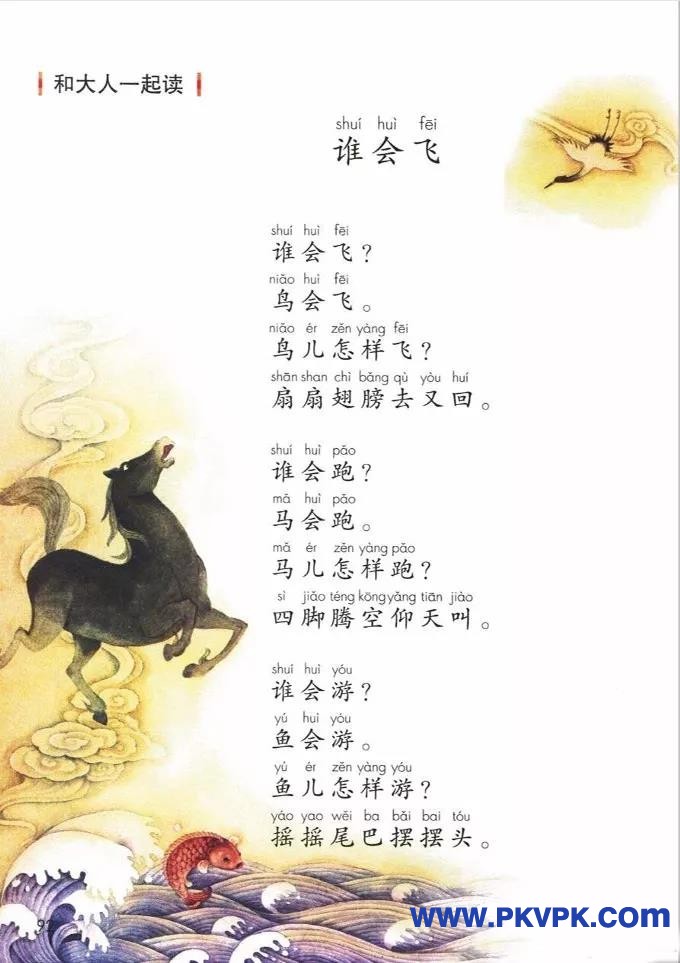 和大人一起读
shuí huì fēi
谁会飞
shuí huì fēi
谁会飞？
niǎo huì fēi
鸟会飞。
niǎo ér zěn yàng fēi
鸟儿怎样飞？
shān shan chì bǎng qù yòu huí
扇扇翅膀去又回。
shuí huì pǎo
谁会跑？
mǎ huì pǎo
马会跑。
mǎ ér zěn yàng pǎo
马儿怎样跑？
sì jiǎo téng kōng yǎng tiān jiào
四脚腾空仰天叫。
shuí huì yóu
谁会游？
yú huì yóu
鱼会游。
yú ér zěn yàng yóu
鱼儿怎样游？
yáo yao wěi ba bǎi bai tóu
摇摇尾巴摆摆头。
www.PKVPK.com